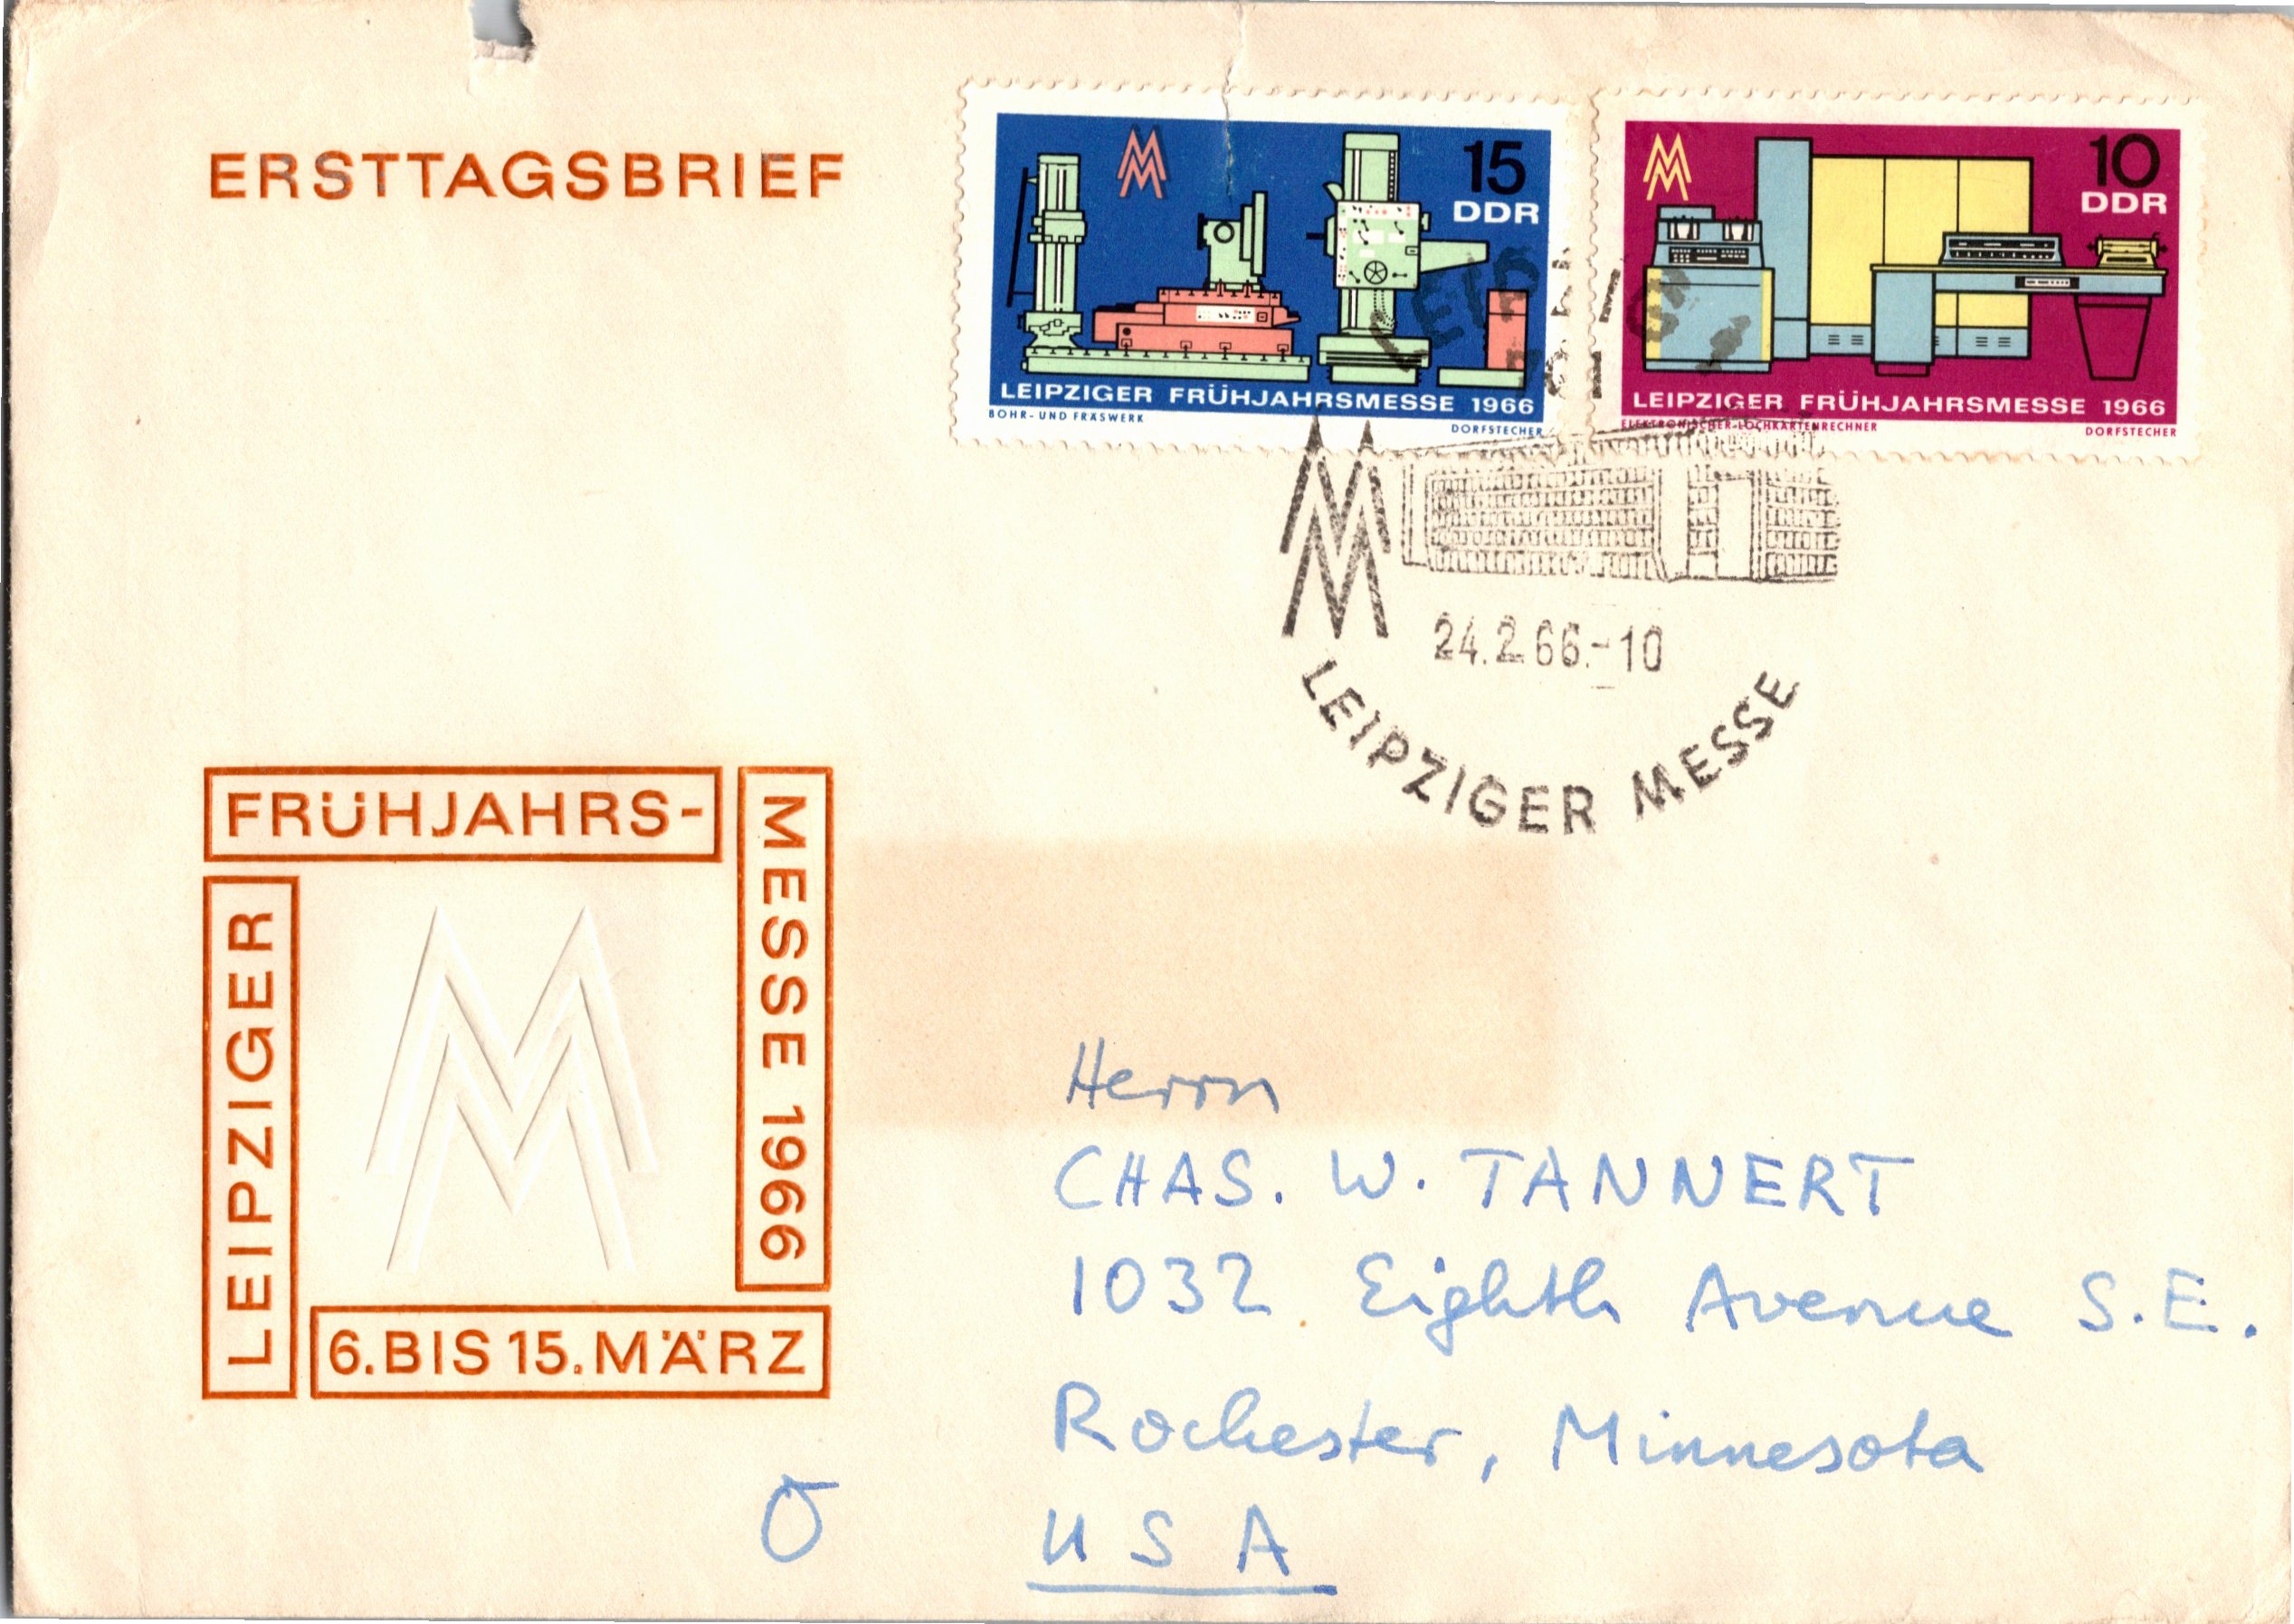 ERSTTAGSBRIEF
15
DDR
LEIPZIGER FRÜHJAHRSMESSE 1966
BOHR- UND FRÄSWERK
DORFSTECHER
10
DDR
LEIPZIGER FRÜHJAHRSMESSE 1966
ELEKTRONISCHER LOCHKARTENRECHNER
DORFSTECHER
24.2.66.-10
LEIPZIGER MESSE
LEIPZIGER
FRÜHJAHRS-
MESSE 1966
6. BIS 15. MÄRZ
Herrn
CHAS. W. TANNERT
1032 Eighth Avenue S.E.
Rochester, Minnesota
USA